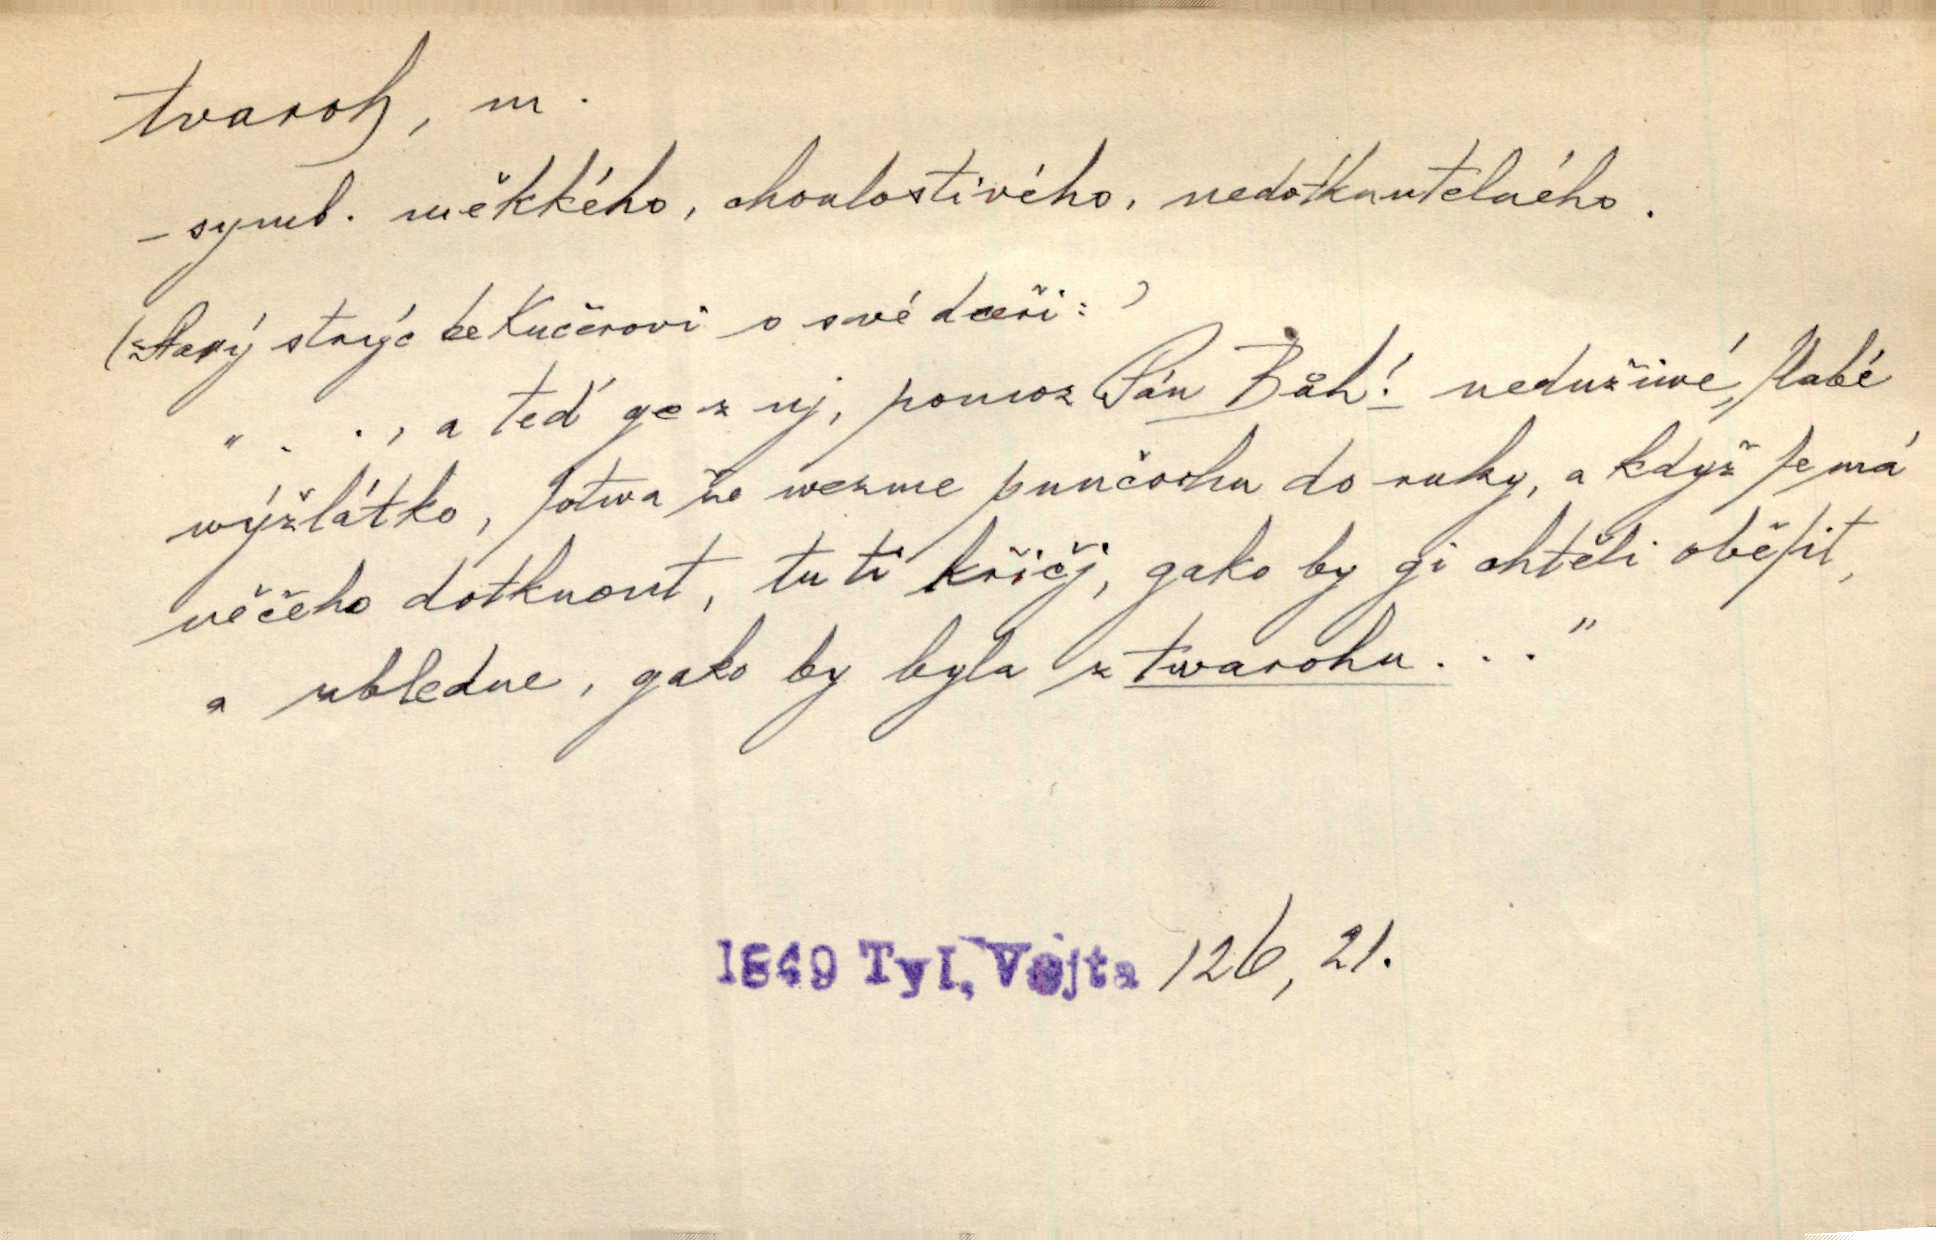 tvaroh, m.
– symb. měkkého, choulostivého, nedotknutelného.
(Starý strýc ke Kučerovi o své dceři:)
" . . , a teď ge z nj, pomoz Pán Bůh! neduživé, ſlabé
wýžlátko, ſotwa že wezme punčochu do ruky, a když ſe má
něčeho dotknout, tu ti křičj, gako by gi chtěli oběſit,
a zbledne, gako by byla z twarohu . . . "
1849 Tyl, Vojta 126, 21.